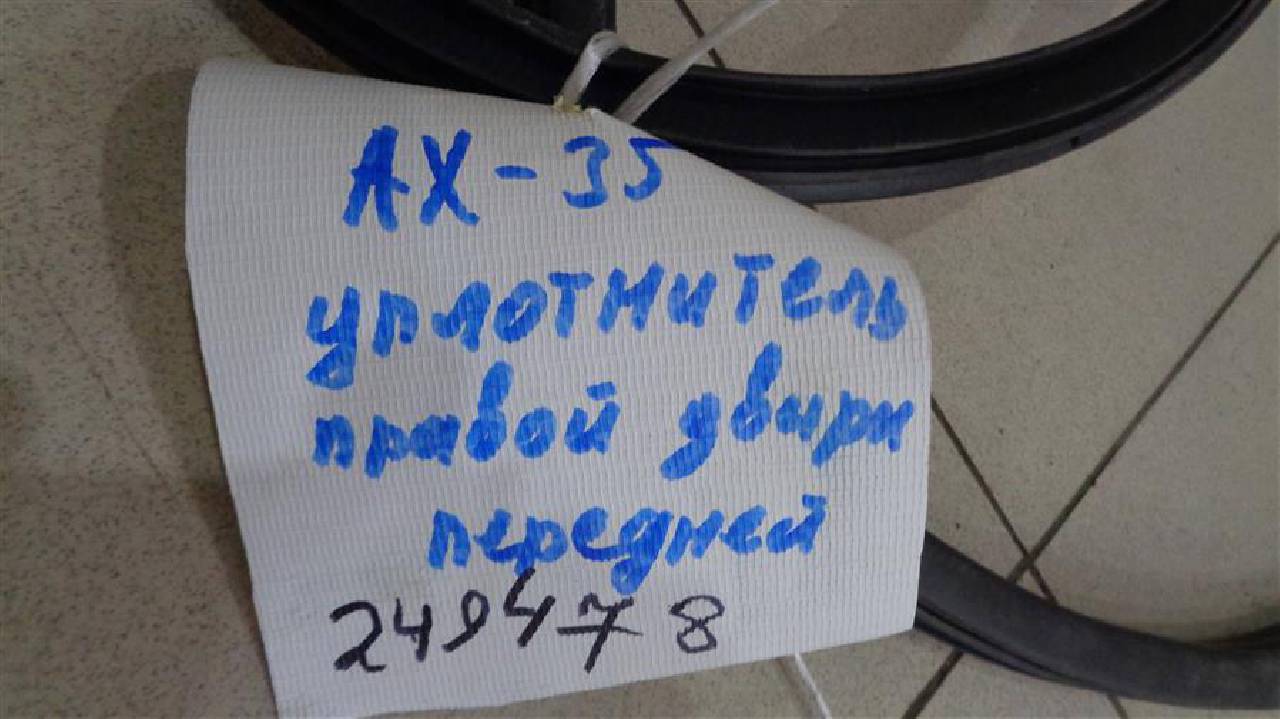 АХ-35
уплотнитель
правой двири
передней
249478